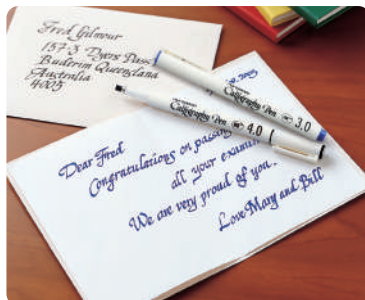 Fred Gilmour
157-3 Dyers Pass
Buderim Queenslana
Australia
4005
2005
Calligraphy Pen 3.0
Calligraphy Pen 4.0
Dear Fred
Congratulations on passing
all your examin
We are very proud of you.
Love Mary and Bill